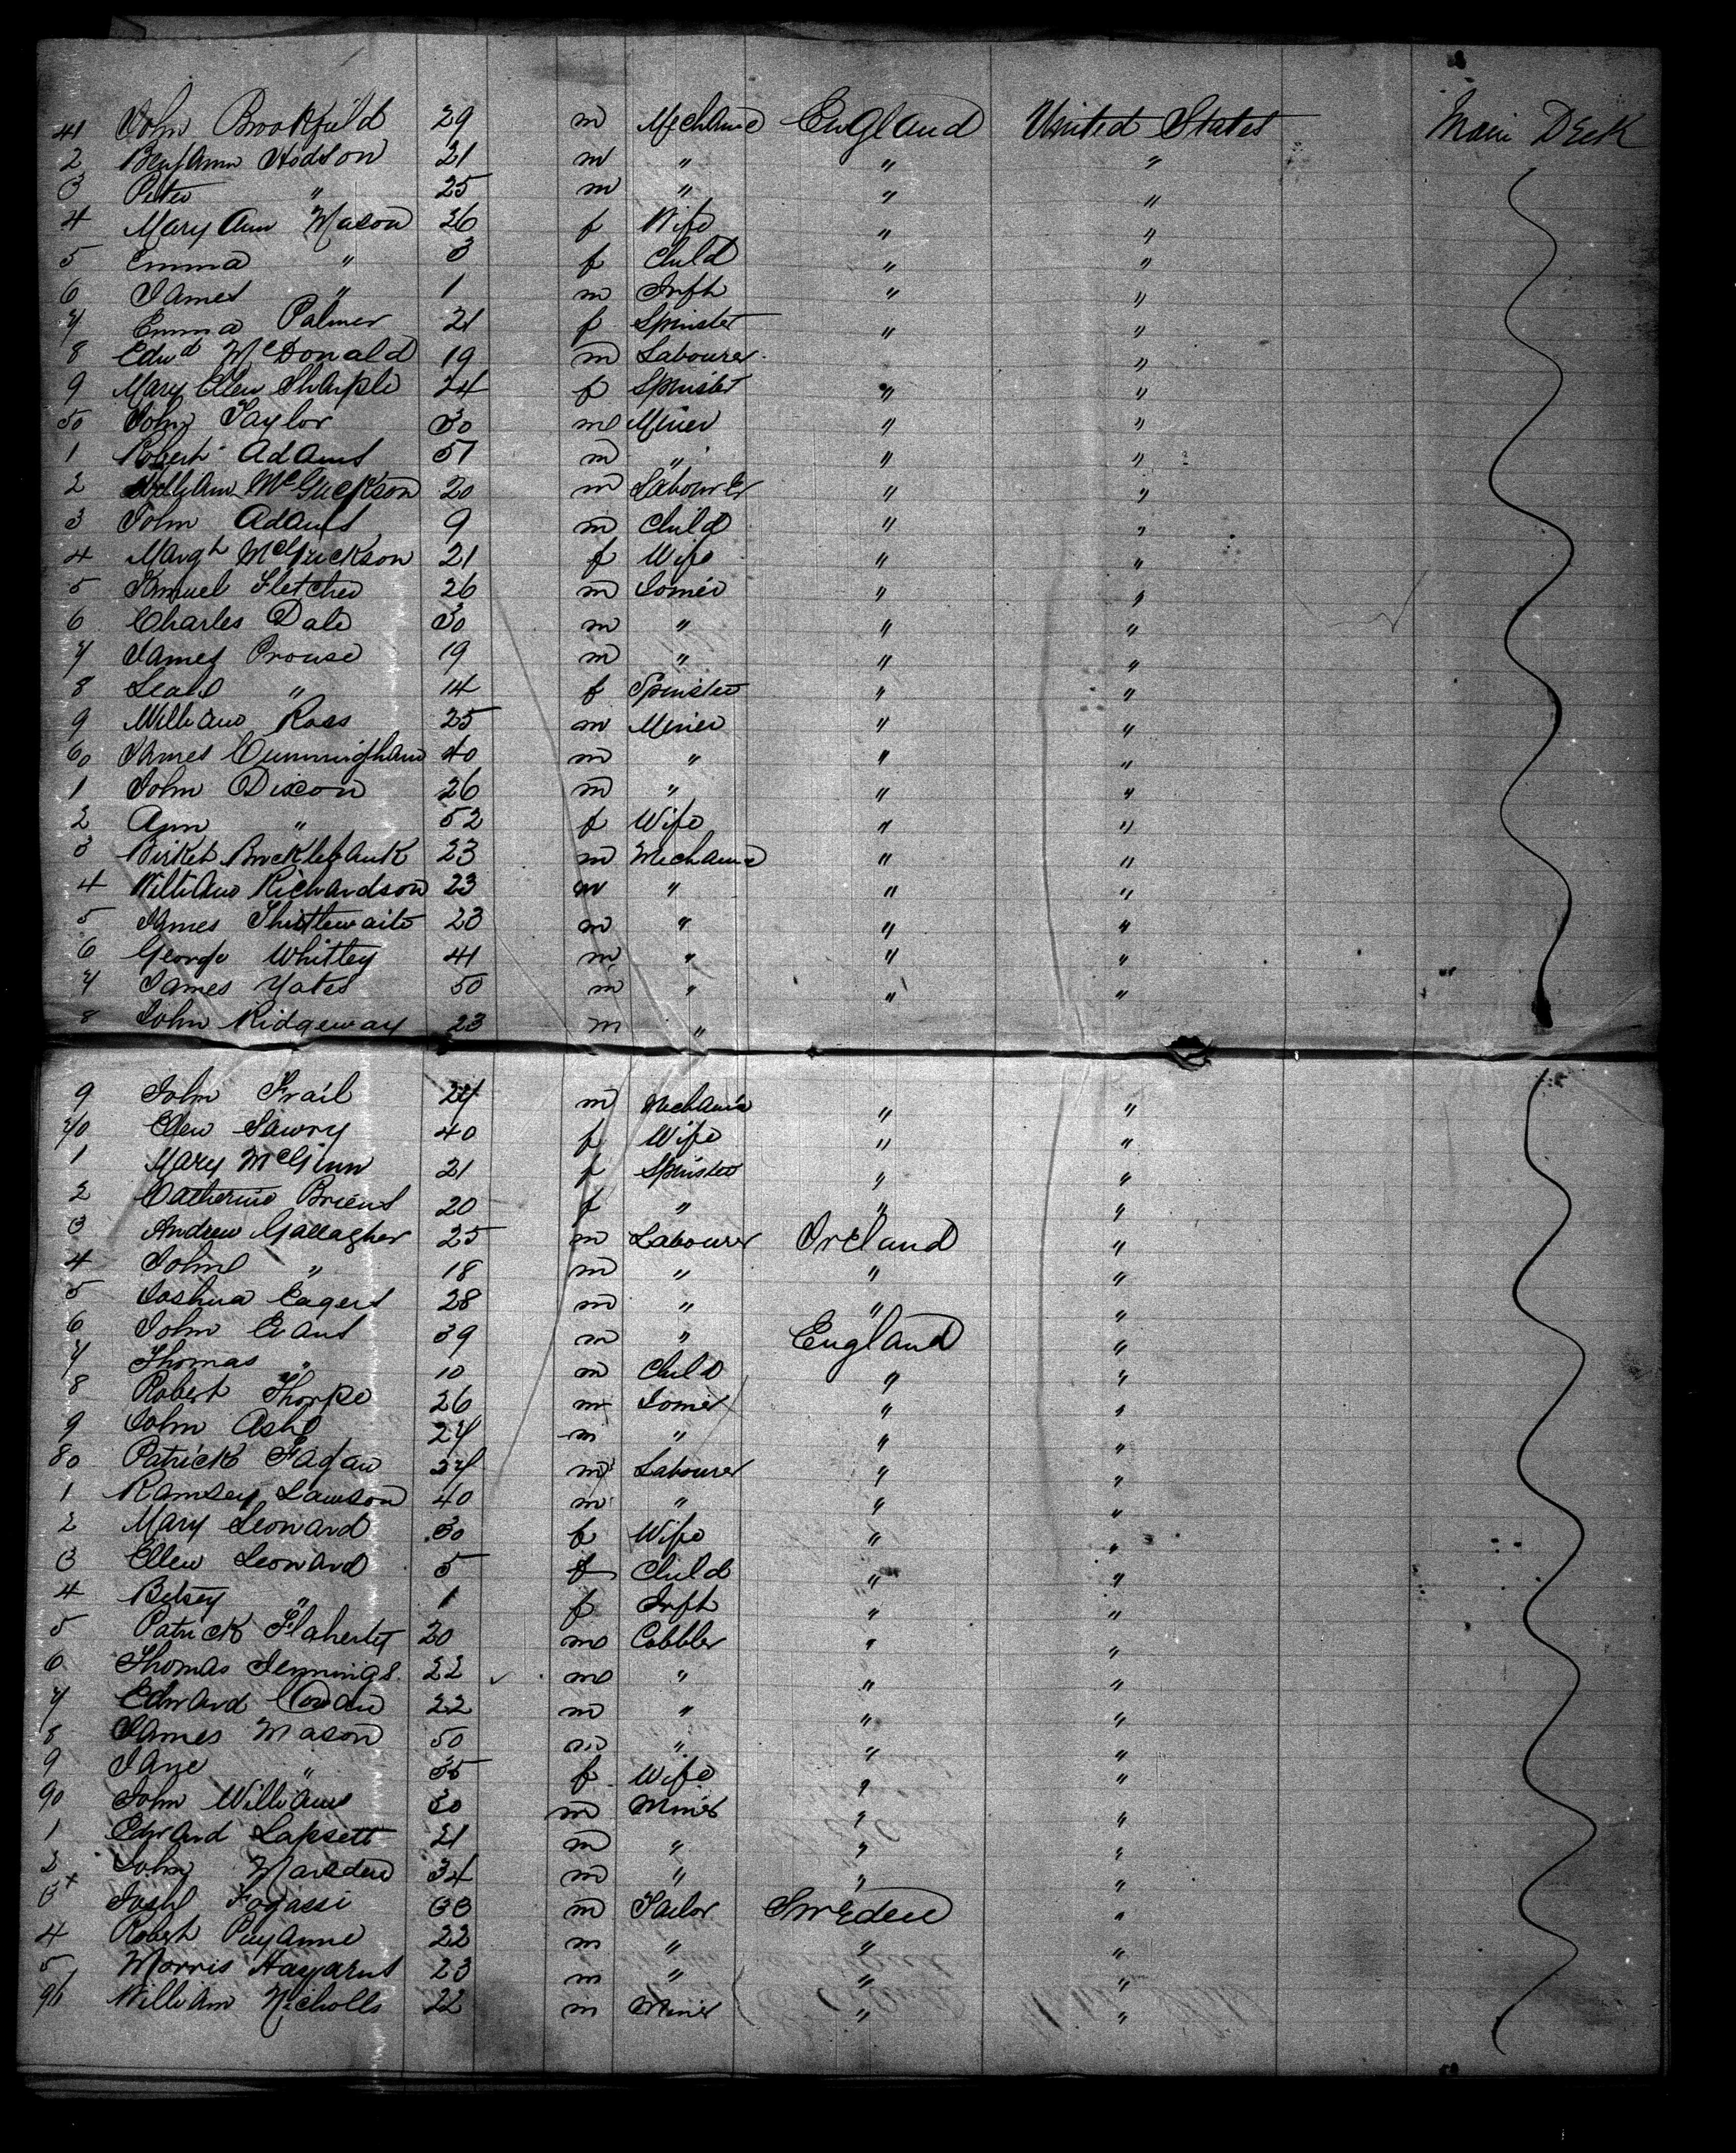 41 John Brookfield 29 m Mechanic England United States Main Deck
2 Benjamin Hodson 21 m " " "
3 Peter " 25 m " " "
4 Mary Ann Mason 26 f Wife " "
5 Emma " 3 f Child " "
6 James " 1 m Inft " "
7 Emma Palmer 21 f Spinster " "
8 Edwd McDonald 19 m Labourer " "
9 Mary Ellen Sharple 24 f Spinster " "
50 John Taylor 30 m Miner " "
1 Robert Adams 51 m " " "
2 William McGuckson 20 m Labourer " "
3 John Adams 9 m Child " "
4 Margt McGuckson 21 f Wife " "
5 Samuel Fletcher 26 m Joiner " "
6 Charles Dale 30 m " " "
7 James Prouse 19 m " " "
8 Leah " 14 f Spinster " "
9 William Ross 25 m Miner " "
60 James Cunningham 40 m " " "
1 John Dixon 26 m " " "
2 Ann " 52 f Wife " "
3 Birket Brocklebank 23 m Mechanic " "
4 William Richardson 23 m " " "
5 James 23 m " " "
6 George Whitley 41 m " " "
7 James Yates 50 m " " "
8 John Ridgeway 23 m "
9 John Frail 24 m Mechanic " "
70 Ellen Sawry 40 f Wife " "
1 Mary McGinn 21 f Spinster " "
2 Catherine Briens 20 f " " "
3 Andrew Gallagher 25 m Labourer Ireland "
4 John " 18 m " " "
5 Joshua Eagers 28 m " " "
6 John Evans 39 m " England "
7 Thomas " 10 m Child " "
8 Robert Thorpe 26 m Joiner " "
9 John Ash 24 m " " "
80 Patrick Fagan m Labourer " "
1 Ramsey Lawson 40 m " " "
2 Mary Leonard 30 f Wife " "
3 Ellen Leonard 5 f Child " "
4 Betsey " 1 f Inft " "
5 Patrick Flaherty 20 m Cobbler " "
6 Thomas Jennings 22 m " " "
7 Edward 22 m " " "
8 James Mason 50 m " " "
9 Jane " 35 f Wife " "
90 John Williams 30 m Miner " "
1 Edward Lapsett 21 m " " "
2 John Marsden 34 m " " "
3 Josh Fogassi 33 m Sailor Sweden "
4 Robert 22 m " " "
5 Morris 23 m " " "
96 William Nicholls 22 m Miner " "